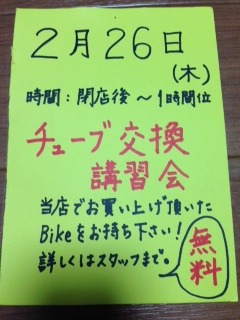 2月26日
(木)
時間:閉店後〜1時間位
チューブ交換
講習会
当店でお買い上げ頂いた
Bikeをお持ち下さい!
詳しくはスタッフまで。
無料